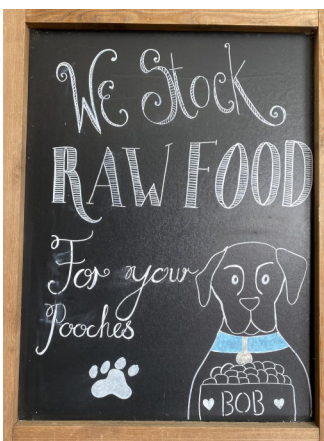 We Stock
RAW FOOD
For your
Pooches
BOB